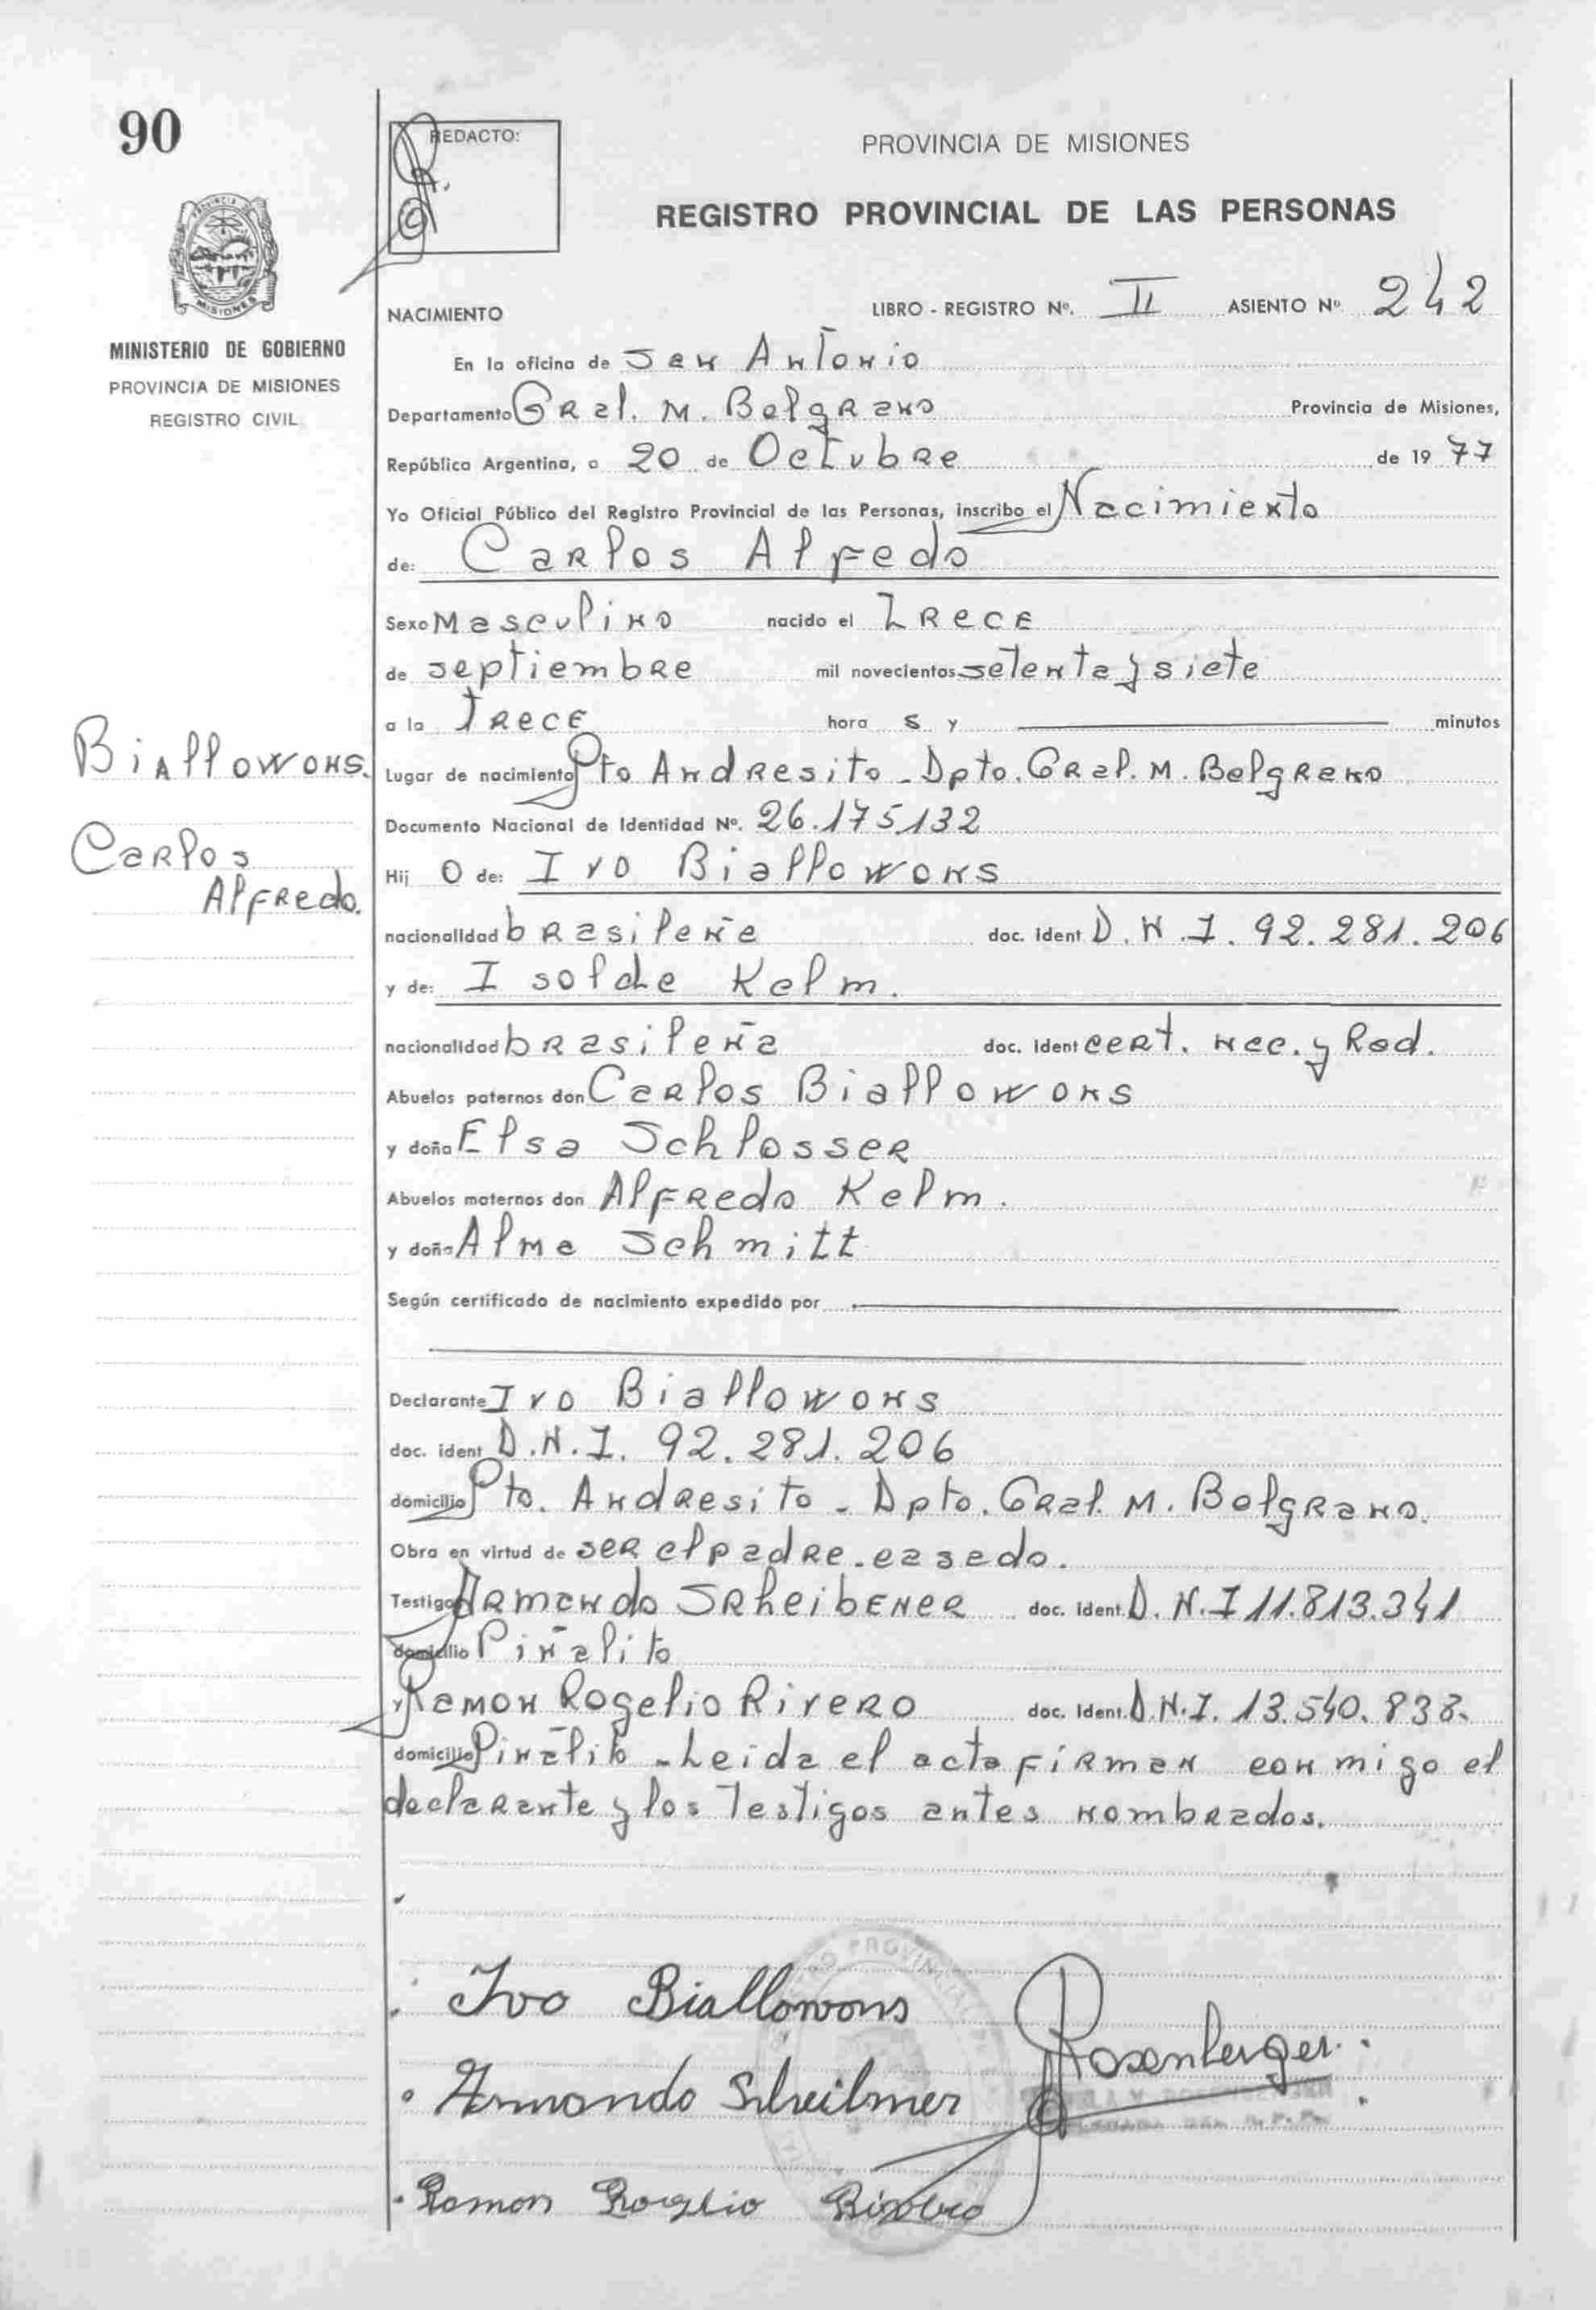 90
REDACTO:
PROVINCIA DE MISIONES
REGISTRO PROVINCIAL DE LAS PERSONAS
MINISTERIO DE GOBIERNO
PROVINCIA DE MISIONES
REGISTRO CIVIL
NACIMIENTO LIBRO - REGISTRO Nº. II ASIENTO Nº 242
En la oficina de San Antonio
Departamento Gral. M. Belgrano Provincia de Misiones,
República Argentina, a 20 de Octubre de 1977
Yo Oficial Público del Registro Provincial de las Personas, inscribo el Nacimiento
de: Carlos Alfedo
Sexo Masculino nacido el Trece
de septiembre mil novecientos setenta y siete
a la Trece hora s y minutos
Biallowons.
Carlos
Alfredo.
Lugar de nacimiento Pto Andresito - Dpto. Gral. M. Belgrano
Documento Nacional de Identidad Nº. 26.175.132
Hij o de: Ivo Biallowons
nacionalidad brasileña doc. ident D.N.I. 92.281.206
y de: Isolde Kelm.
nacionalidad brasileña doc. ident cert. nac. y Rad.
Abuelos paternos don Carlos Biallowons
y doña Elsa Schlosser
Abuelos maternos don Alfredo Kelm.
y doña Alma Schmitt
Según certificado de nacimiento expedido por
Declarante Ivo Biallowons
doc. ident D.N.I. 92.281.206
domicilio Pto. Andresito - Dpto. Gral. M. Belgrano.
Obra en virtud de ser el padre - casado.
Testigos Armando Srheibener doc. ident. D.N.I 11.813.341
domicilio Piñalito
y Ramon Rogelio Rivero doc. ident. D.N.I. 13.540.838.
domicilio Piñalito - Leida el acta firman conmigo el
declarante y los Testigos antes nombrados.
Ivo Biallowons
Rosenberger
Armando
Ramon Rogelio Rivero